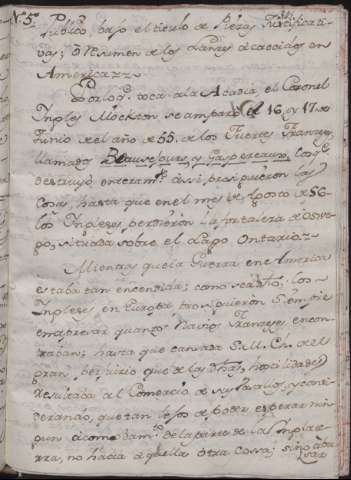 N.5.
Publico bajo el titulo de Piezas Justificati-
vas; ó Resumen de los Lanzes acaecidos en
America
Por lo q.e toca a la Acadia, el Coronel
Ingles Mockton se amparó el 16 y 17 de
Junio de el año de 55. de los Fuertes Franceses
llamados Beausejour, y Gaspereaux, los q.e
destruyó enteram.te assi prosiguieron las
cosas, hasta que en el mes de Agosto de 56
los Ingleses perdieron la fortaleza de Oswe-
go, situada sobre el Lago Ontario
Mientras que la Guerra en el America
estaba tan encendida; como se ha dho, los
Ingleses en Europa prosiguieron siempre
en apresar quantos Navios Franceses encon-
traban; hasta que cansada S.M. Ch. de el
gran perjuicio que de las dhas hostilidades
resultaba al Comercio de sus Vasallos, y consi-
derando, que tan lejos de poder esperar nin-
gun acomodam.to de la parte de la Inglate-
rra, no hacia aquella otra cossa; sino abu-
sar